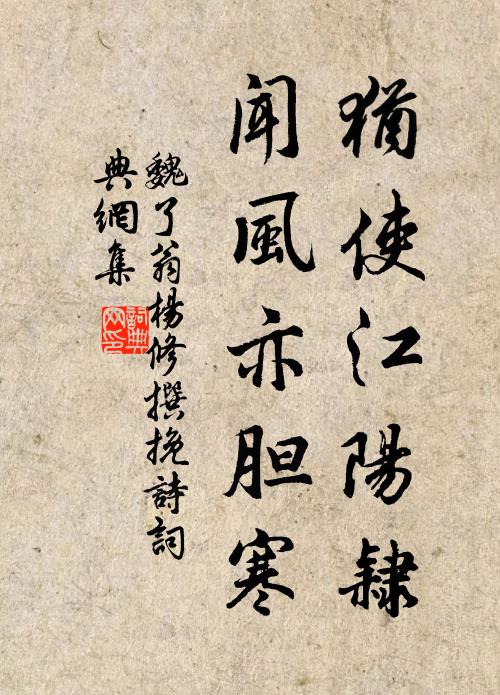 猶使江陽隸
聞風亦胆寒
魏了翁楊修撰挽詩詞
典網集
詞典
网印